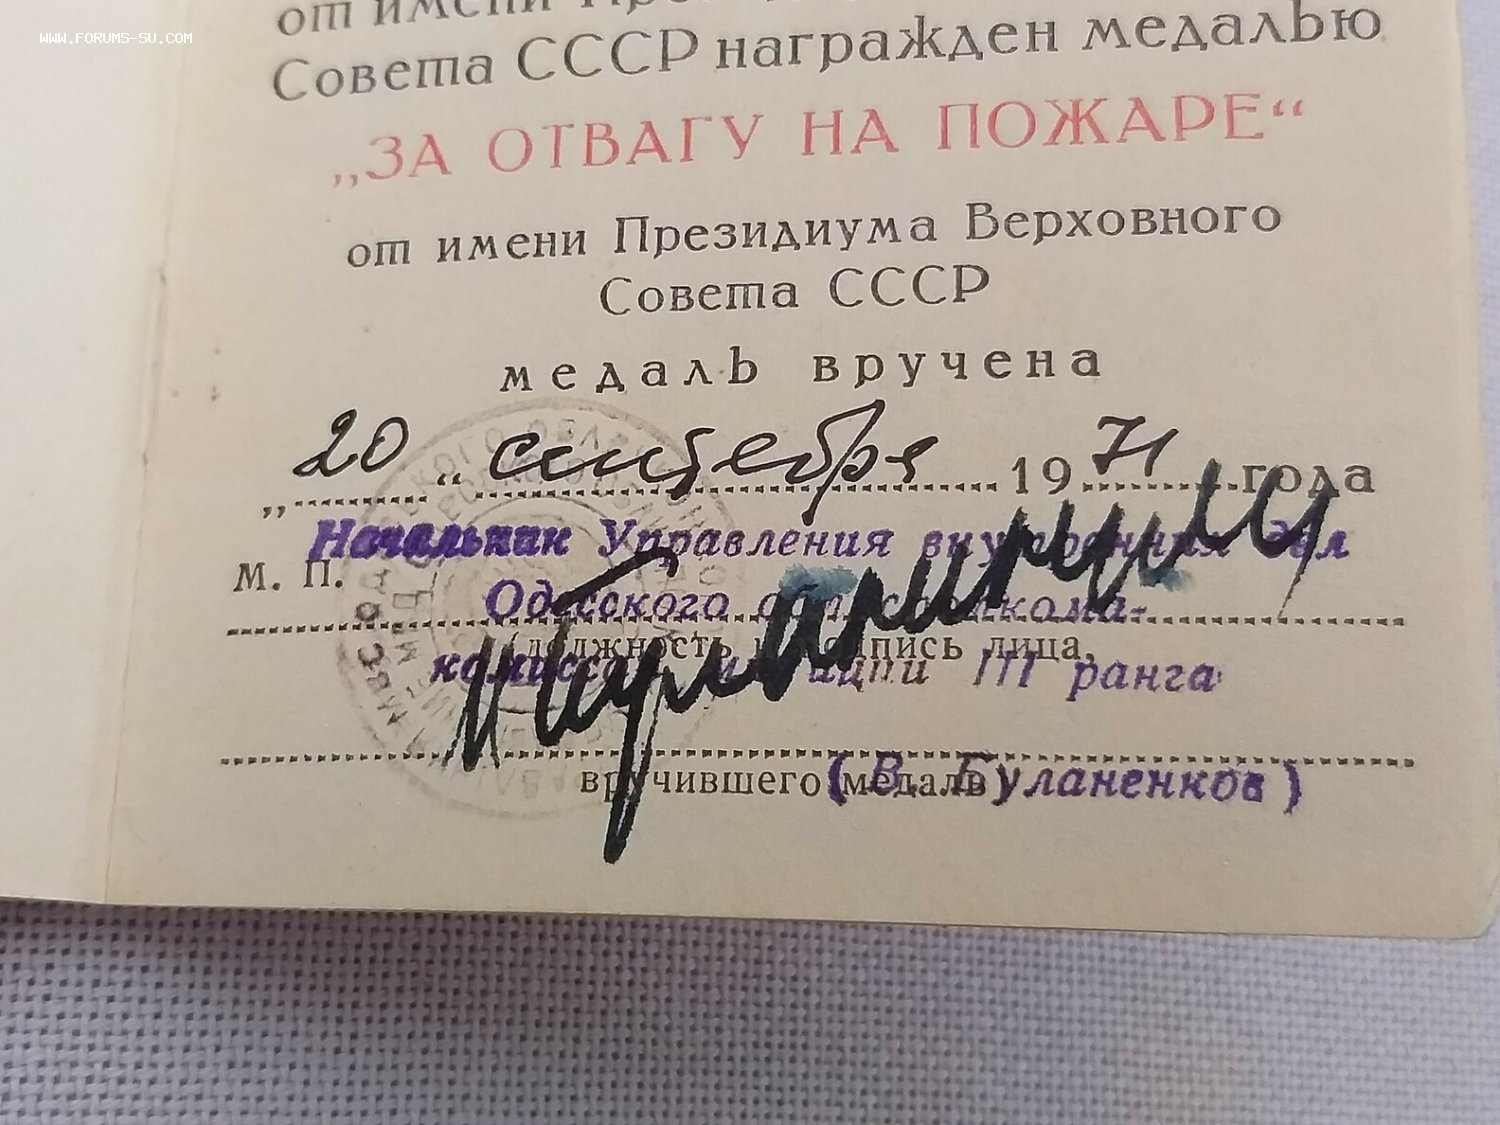 www.forums-su.com
от имени
Совета СССР награжден медалью
„ЗА ОТВАГУ НА ПОЖАРЕ“
от имени Президиума Верховного
Совета СССР
медаль вручена
„20“ сентября 1971 года
Начальник Управления внутренних дел
М. П.
Одесского облисполкома-
(должность и подпись лица,
комиссар милиции III ранга
вручившего медаль)
(В. Буланенков)